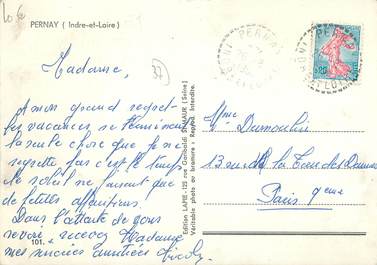 10 €
PERNAY (Indre-et-Loire)
37
Madame,
A mon grand regret
les vacances se terminent
la seule chose que je ne
regrette pas c'est le temps
le soleil ne faisant que
de petites apparitions.
Dans l'attente de vous
revoir recevez Madame
mes sincères amitiés
101.
Edition LAPIE - 125 rue Garibaldi ST-MAUR (Seine)
Véritable photo au bromure - Reprod. interdite.
PERNAY
PERNAY
0,25
Mme Dumoulin
13 rue de la Tour des Dames
Paris 9eme